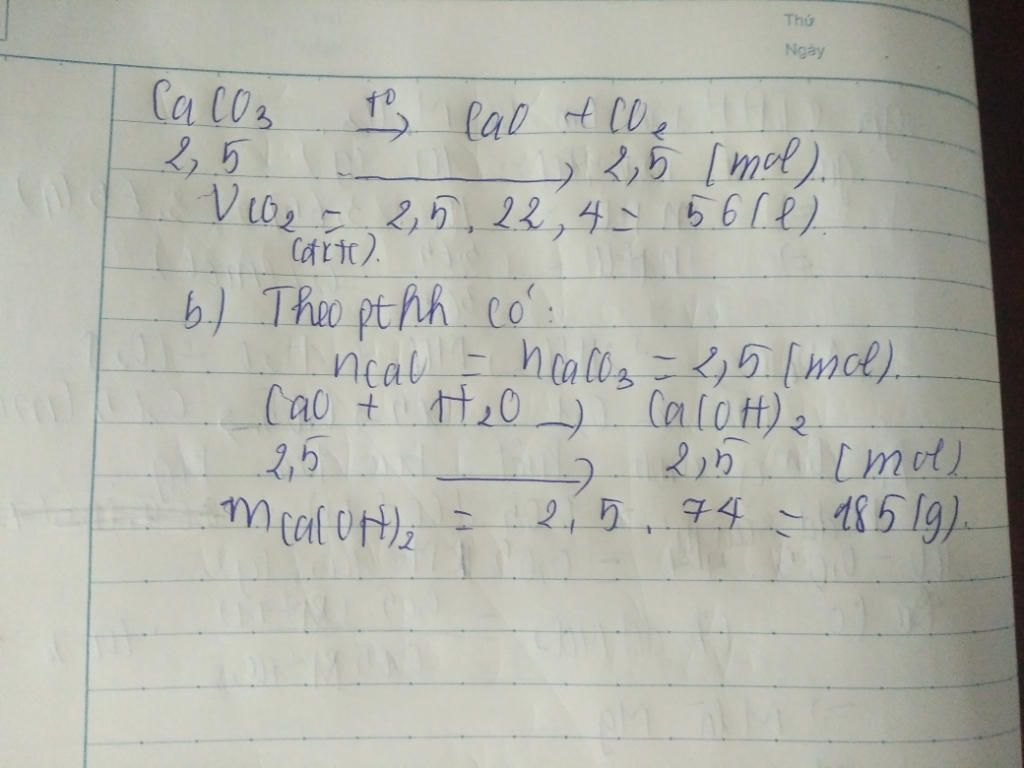 Thứ
Ngày
CaCO3 t° → CaO + CO2
2,5 → 2,5 (mol).
VCO2 = 2,5 . 22,4 = 56 (l).
(đktc).
b.) Theo pthh có:
nCaO = nCaCO3 = 2,5 (mol).
CaO + H2O → Ca(OH)2
2,5 → 2,5 (mol)
mCa(OH)2 = 2,5 . 74 = 185 (g).